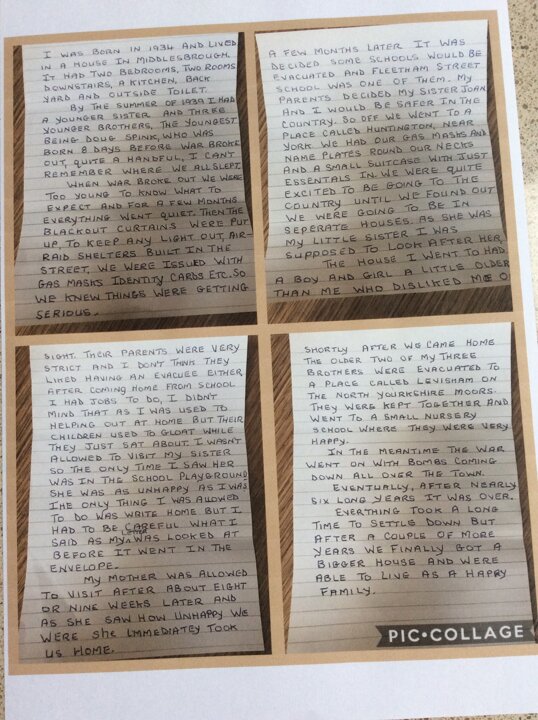 I WAS BORN IN 1934 AND LIVED
IN A HOUSE IN MIDDLESBROUGH.
IT HAD TWO BEDROOMS, TWO ROOMS
DOWNSTAIRS, A KITCHEN, BACK
YARD AND OUTSIDE TOILET.
BY THE SUMMER OF 1939 I HAD
A YOUNGER SISTER AND THREE
YOUNGER BROTHERS, THE YOUNGEST
BEING DOUG SPINK, WHO WAS
BORN 8 DAYS BEFORE WAR BROKE
OUT, QUITE A HANDFUL, I CAN'T
REMEMBER WHERE WE ALL SLEPT.
WHEN WAR BROKE OUT WE WERE
TOO YOUNG TO KNOW WHAT TO
EXPECT AND FOR A FEW MONTHS
EVERYTHING WENT QUIET. THEN THE
BLACKOUT CURTAINS WERE PUT
UP, TO KEEP ANY LIGHT OUT, AIR-
RAID SHELTERS BUILT IN THE
STREET, WE WERE ISSUED WITH
GAS MASKS IDENTITY CARDS ETC. SO
WE KNEW THINGS WERE GETTING
SERIOUS.
A FEW MONTHS LATER IT WAS
DECIDED SOME SCHOOLS WOULD BE
EVACUATED AND FLEETHAM STREET
SCHOOL WAS ONE OF THEM. MY
PARENTS DECIDED MY SISTER JOAN
AND I WOULD BE SAFER IN THE
COUNTRY. SO OFF WE WENT TO A
PLACE CALLED HUNTINGTON, NEAR
YORK WE HAD OUR GAS MASKS AND
NAME PLATES ROUND OUR NECKS
AND A SMALL SUITCASE WITH JUST
ESSENTIALS IN. WE WERE QUITE
EXCITED TO BE GOING TO THE
COUNTRY UNTIL WE FOUND OUT
WE WERE GOING TO BE IN
SEPERATE HOUSES. AS SHE WAS
MY LITTLE SISTER I WAS
SUPPOSED TO LOOK AFTER HER.
THE HOUSE I WENT TO HAD
A BOY AND GIRL A LITTLE OLDER
THAN ME WHO DISLIKED ME O
SIGHT. THEIR PARENTS WERE VERY
STRICT AND I DON'T THINK THEY
LIKED HAVING AN EVACUEE EITHER,
AFTER COMING HOME FROM SCHOOL
I HAD JOBS TO DO, I DIDN'T
MIND THAT AS I WAS USED TO
HELPING OUT AT HOME BUT THEIR
CHILDREN USED TO GLOAT WHILE
THEY JUST SAT ABOUT. I WASN'T
ALLOWED TO VISIT MY SISTER
SO THE ONLY TIME I SAW HER
WAS IN THE SCHOOL PLAYGROUND
SHE WAS AS UNHAPPY AS I WAS.
THE ONLY THING I WAS ALLOWED
TO DO WAS WRITE HOME BUT I
HAD TO BE CAREFUL WHAT I
SAID AS MY LETTER WAS LOOKED AT
BEFORE IT WENT IN THE
ENVELOPE.
MY MOTHER WAS ALLOWED
TO VISIT AFTER ABOUT EIGHT
OR NINE WEEKS LATER AND
AS SHE SAW HOW UNHAPPY WE
WERE SHE IMMEDIATEY TOOK
US HOME.
SHORTLY AFTER WE CAME HOME
THE OLDER TWO OF MY THREE
BROTHERS WERE EVACUATED TO
A PLACE CALLED LEVISHAM ON
THE NORTH YOURKSHIRE MOORS.
THEY WERE KEPT TOGETHER AND
WENT TO A SMALL NURSERY
SCHOOL WHERE THEY WERE VERY
HAPPY.
IN THE MEANTIME THE WAR
WENT ON WITH BOMBS COMING
DOWN ALL OVER THE TOWN.
EVENTUALLY, AFTER NEARLY
SIX LONG YEARS IT WAS OVER.
EVERTHING TOOK A LONG
TIME TO SETTLE DOWN BUT
AFTER A COUPLE OF MORE
YEARS WE FINALLY GOT A
BIGGER HOUSE AND WERE
ABLE TO LIVE AS A HAPPY
FAMILY.
PIC•COLLAGE